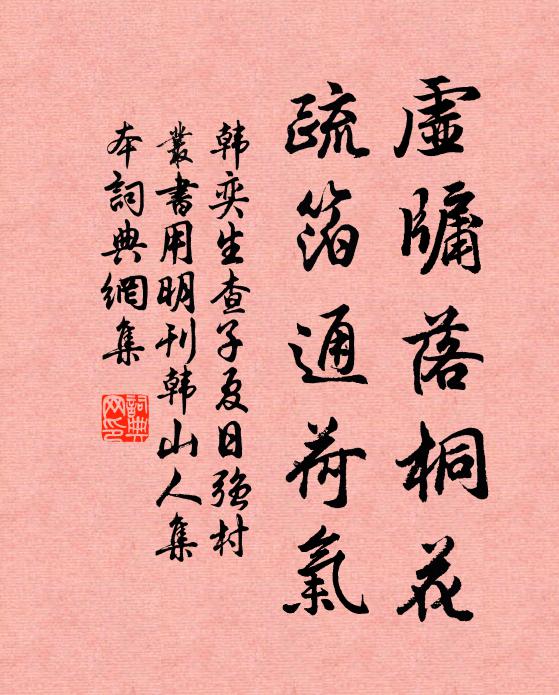 虛牖落桐花
疏箔通荷氣
韩奕生查子夏日强村
叢書用明刊韩山人集
本詞典網集
詞典
网印